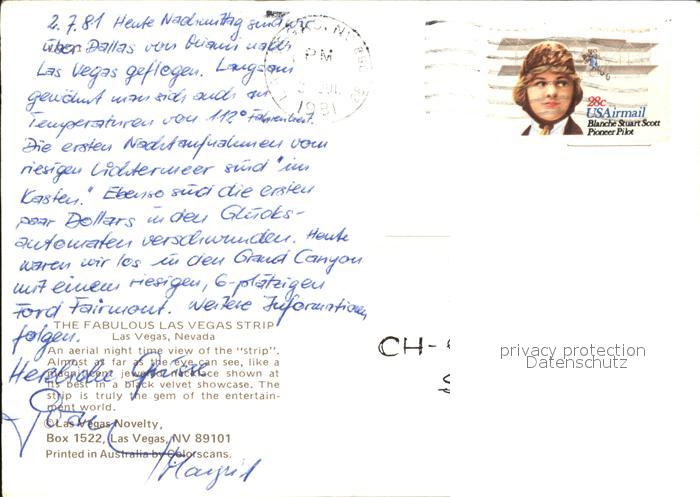 2.7.81 Heute Nachmittag sind wir
über Dallas von Miami nach
Las Vegas geflogen. Langsam
gewöhnt man sich auch an
Temperaturen von 112° Fahrenheit.
Die ersten Nachtaufnahmen vom
riesigen Lichtermeer sind "im
Kasten." Ebenso sind die ersten
paar Dollars in den Glücks-
automaten verschwunden. Heute
waren wir los in den Grand Canyon
mit einem riesigen, 6-plätzigen
Ford Fairmont. Weitere Informationen
folgen.
Herzliche Grüsse
Margrit
THE FABULOUS LAS VEGAS STRIP
Las Vegas, Nevada
An aerial night time view of the "strip".
Almost as far as the eye can see, like a
magnificent jeweled necklace shown at
its best in a black velvet showcase. The
strip is truly the gem of the entertain-
ment world.
© Las Vegas Novelty,
Box 1522, Las Vegas, NV 89101
Printed in Australia by Colorscans.
PM
JUL
1981
28c
USAirmail
Blanche Stuart Scott
Pioneer Pilot
CH-
privacy protection
Datenschutz